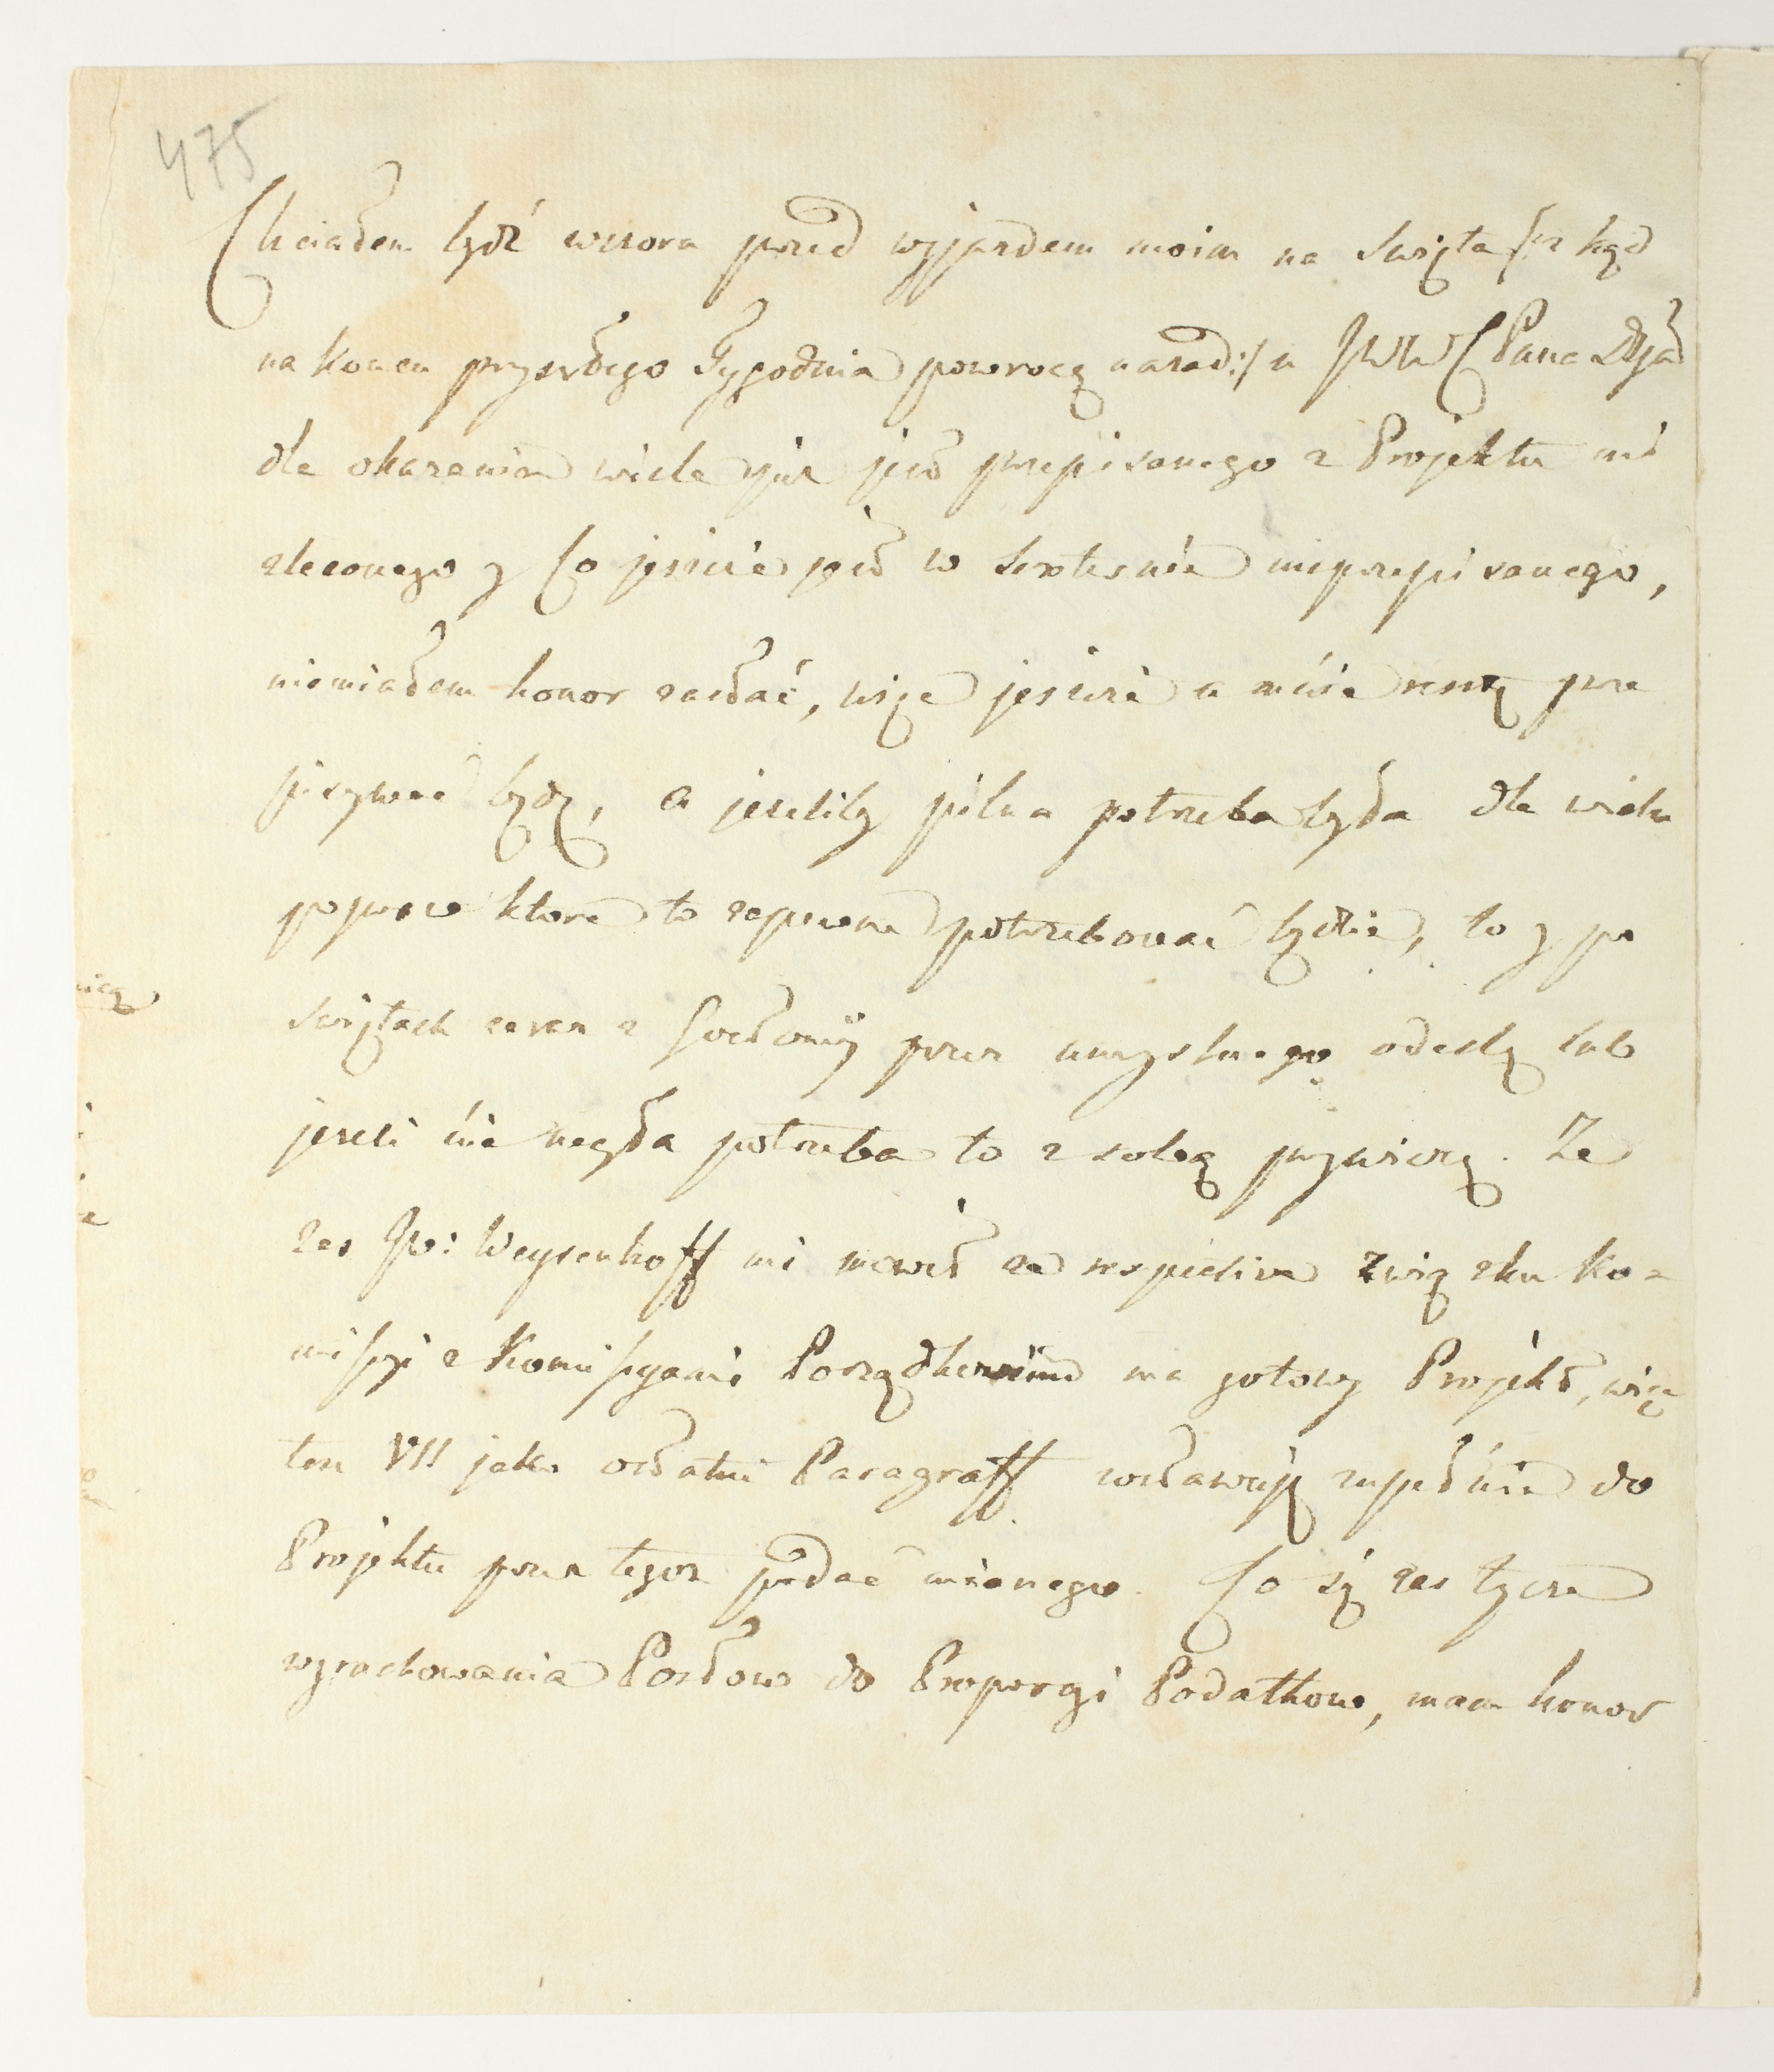 475
Chciałem bydź wczora przed wyjazdem moim na Swięta /:z kąd
na koncu przyszłego Tygodnia powrocę nazad:/ u JWW C Pana Dbja
dla okazania wiele już jest przepisanego z Projektu mi
zleconego y Co jeszcze jest w Sexternie nieprzepisanego,
niemiałem honor zastać, więc jeszcze u mnie resztę prze
pisywać będę, a jeżeliby pilna potrzeba była dla wielu
popraw ktore to zapewne potrzebować będzie, to y po
swiętach zaraz z przez umyslnego odeslę lub
jezeli nie nagła potrzeba to z sobą przywiozę. Ze
zas JW: Weysenhoff mi mowił ze respective związku Ko=
missyi z Komissyami Porządkowimi ma gotowy Projekt, więc
ten VII jako ostatni Paragraff zostawuję zupełnie do
Projektu przez tegoz podać mianego. Co się zas tycze
wyrachowania Posłow do Proporcyi Podatkow, mam honor